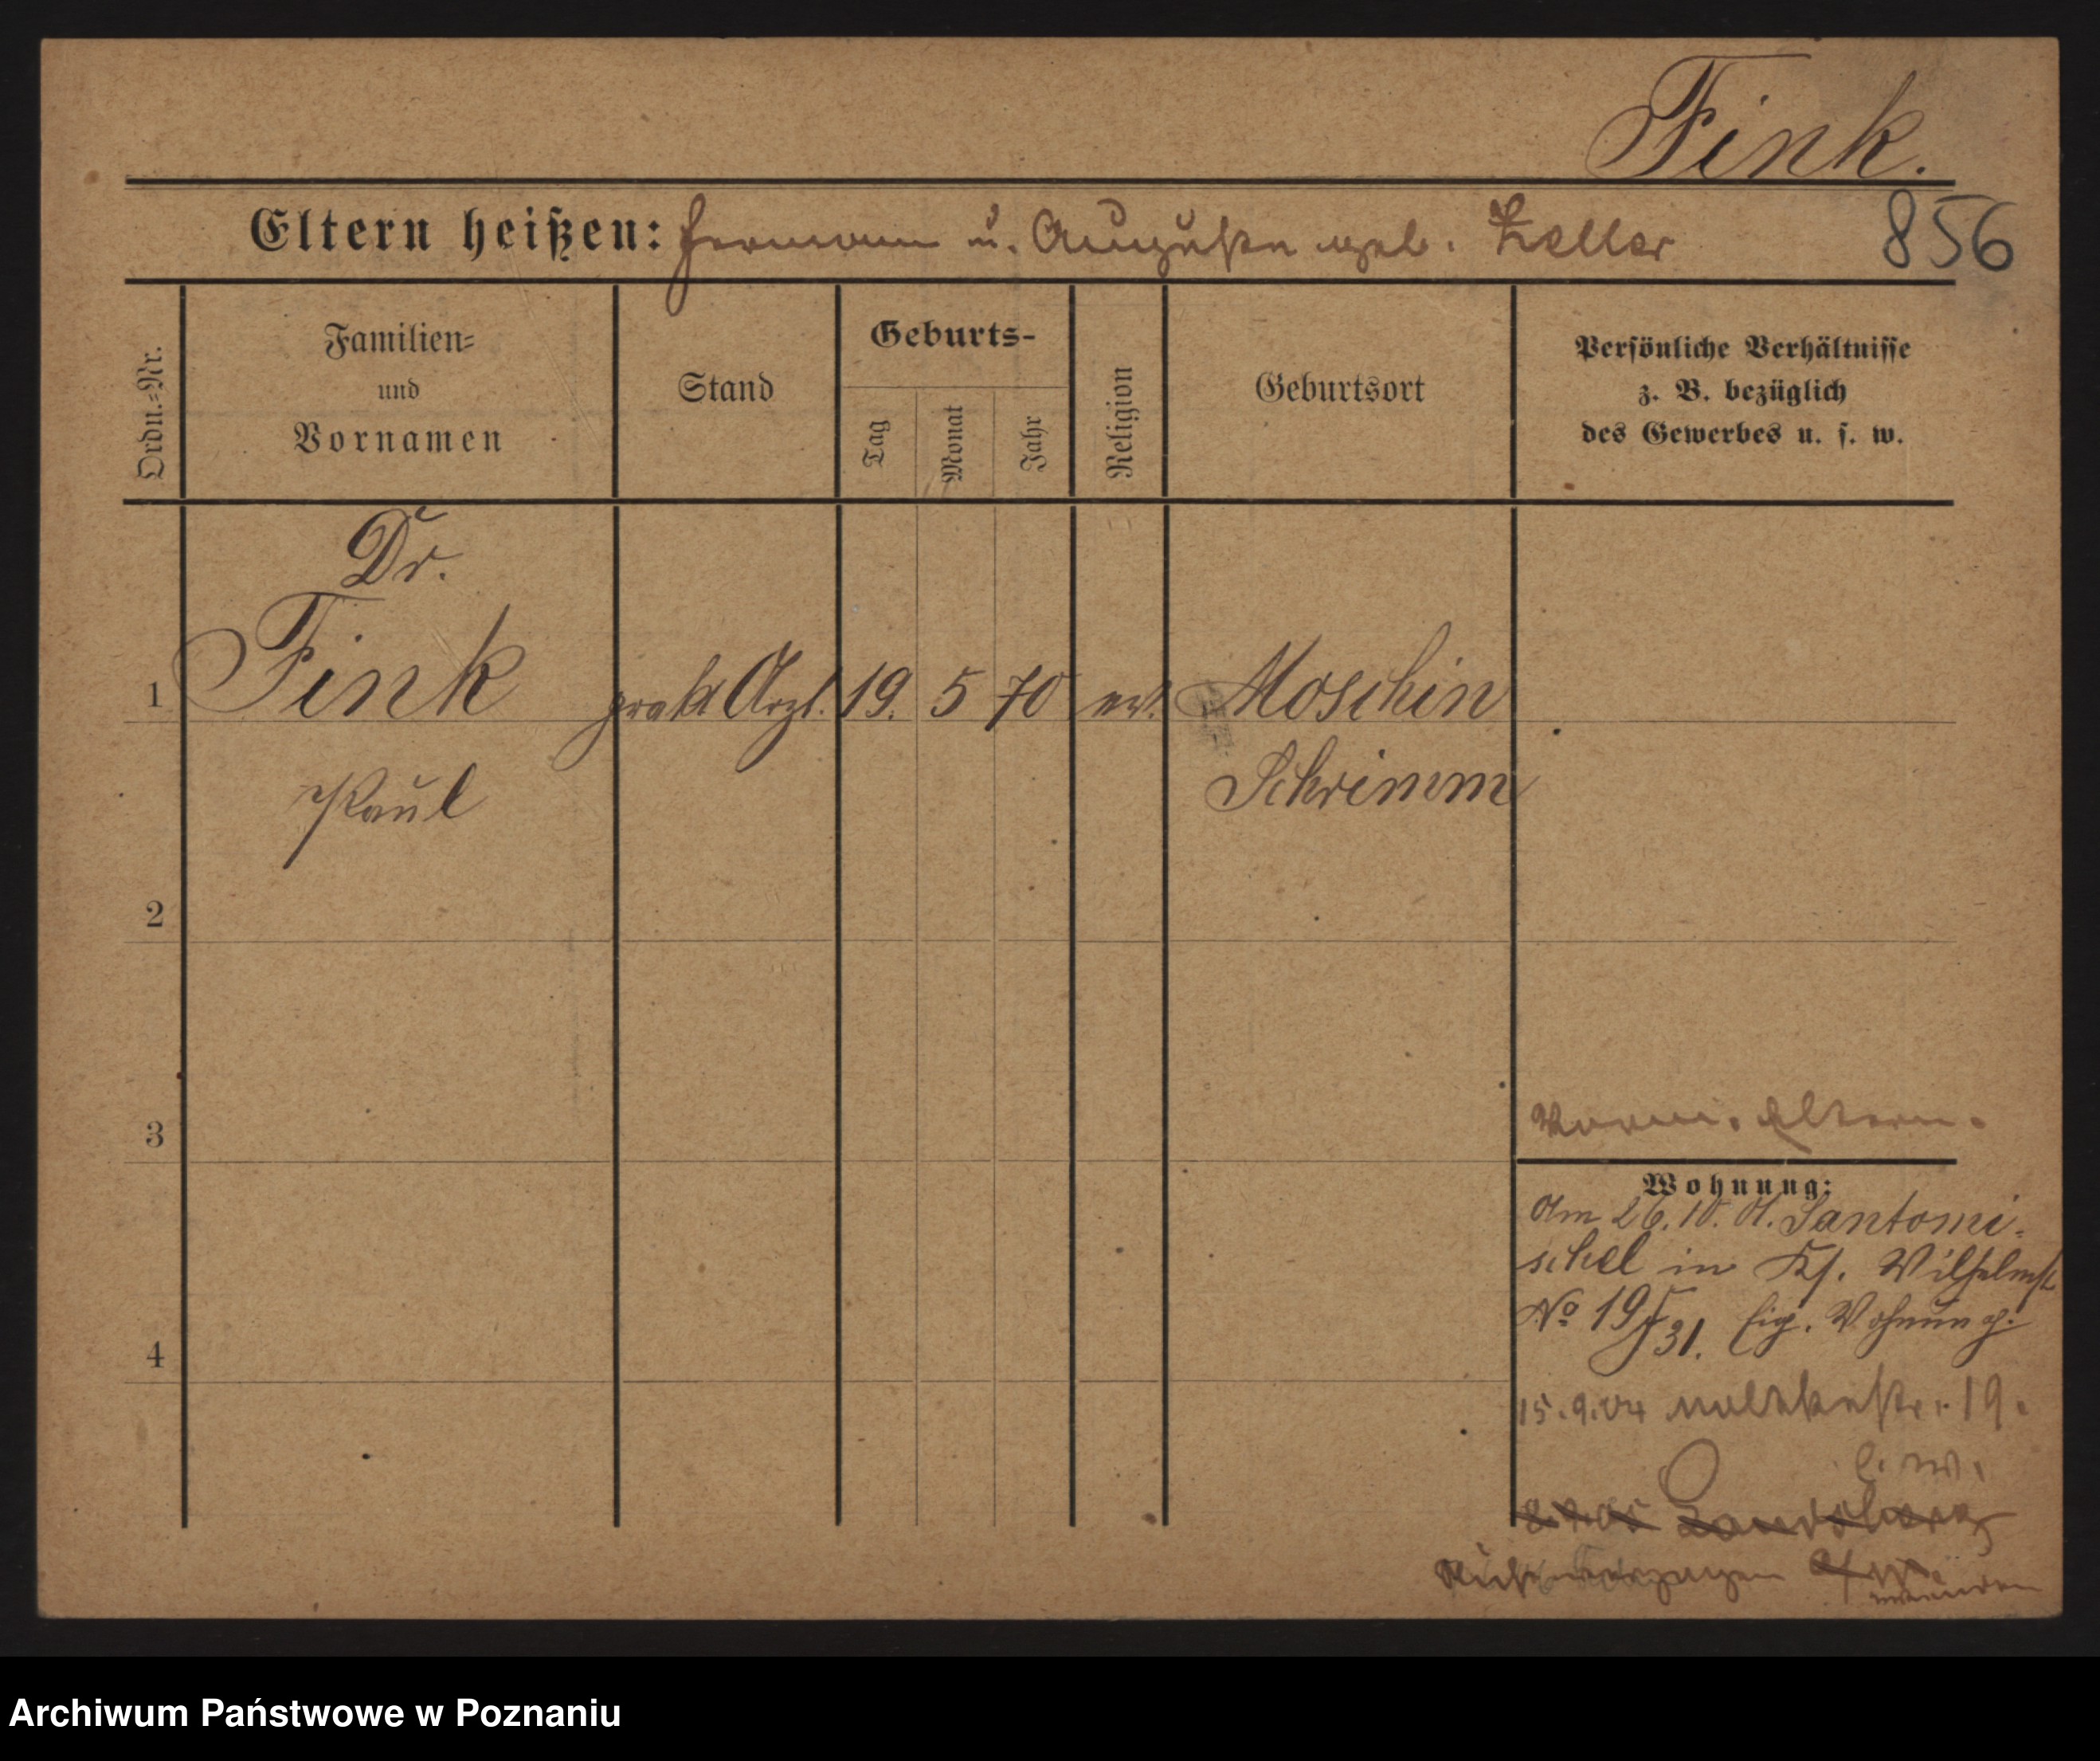 Fink.
Eltern heißen: Hermann u. Auguste geb. Keller
856
Ordn.=Nr.
Familien=
und
Vornamen
Stand
Geburts-
Tag
Monat
Jahr
Religion
Geburtsort
Persönliche Verhältnisse
z. B. bezüglich
des Gewerbes u. s. w.
Dr.
1 Fink prakt Arzt. 19. 5 70 ev. Moschin
Paul Schrimm
2
3
Eltern.
Wohnung:
Am 26. 10. Santomi-
schel in Wilhelmst
No 19 31. Eig. Wohnung.
4
15.9.04 Moltkestr. 19.
e. W.
Landsberg
verzogen
Archiwum Państwowe w Poznaniu